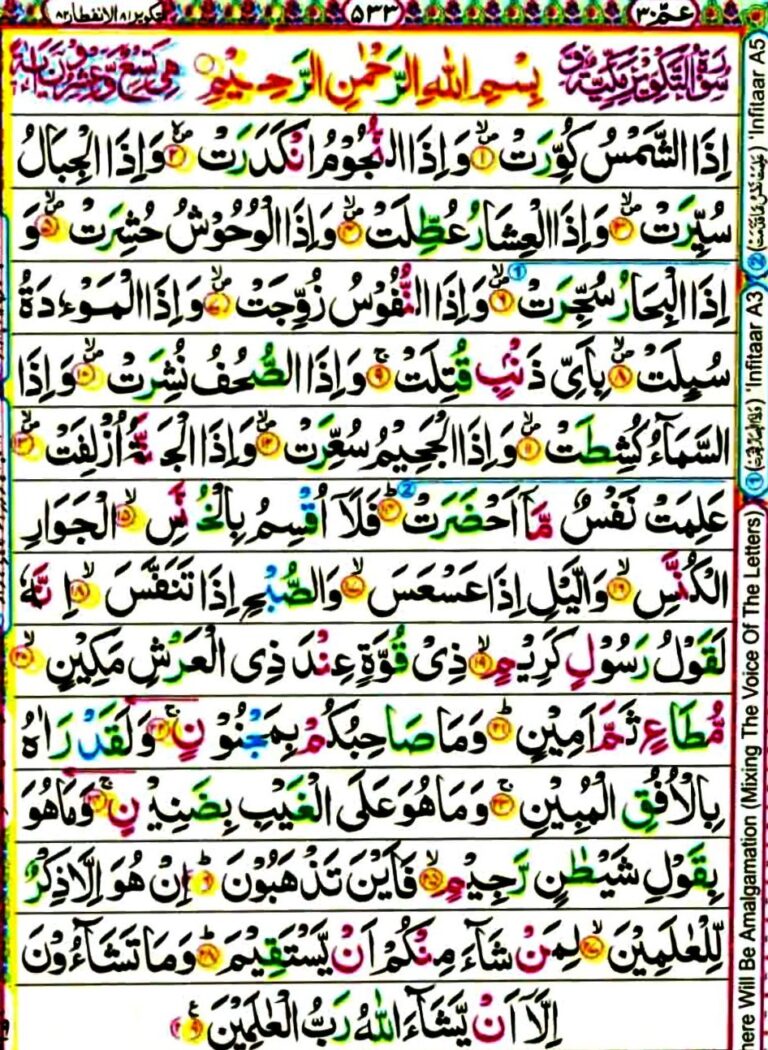 عمّ ٣٠
٥٣٣
التكوير ٨١ الانفطار ٨٢
سُوْرَةُ التَّكْوِيْرِ مَكِّيَّةٌ
بِسْمِ اللّٰهِ الرَّحْمٰنِ الرَّحِيْمِ
هِيَ تِسْعٌ وَّعِشْرُوْنَ اٰيَةً
اِذَا الشَّمْسُ كُوِّرَتْ ۙ﴿١﴾ وَاِذَا النُّجُوْمُ انْكَدَرَتْ ۙ﴿٢﴾ وَاِذَا الْجِبَالُ
سُيِّرَتْ ۙ﴿٣﴾ وَاِذَا الْعِشَارُ عُطِّلَتْ ۙ﴿٤﴾ وَاِذَا الْوُحُوْشُ حُشِرَتْ ۙ﴿٥﴾ وَ
اِذَا الْبِحَارُ سُجِّرَتْ ۙ﴿٦﴾ وَاِذَا النُّفُوْسُ زُوِّجَتْ ۙ﴿٧﴾ وَاِذَا الْمَوْءٗدَةُ
سُىِٕلَتْ ۙ﴿٨﴾ بِاَىِّ ذَنْۢبٍ قُتِلَتْ ۚ﴿٩﴾ وَاِذَا الصُّحُفُ نُشِرَتْ ۙ﴿١٠﴾ وَاِذَا
السَّمَآءُ كُشِطَتْ ۙ﴿١١﴾ وَاِذَا الْجَحِيْمُ سُعِّرَتْ ۙ﴿١٢﴾ وَاِذَا الْجَنَّةُ اُزْلِفَتْ ۙ﴿١٣﴾
عَلِمَتْ نَفْسٌ مَّاۤ اَحْضَرَتْ ؕ﴿١٤﴾ فَلَاۤ اُقْسِمُ بِالْخُنَّسِ ۙ﴿١٥﴾ الْجَوَارِ
الْكُنَّسِ ۙ﴿١٦﴾ وَالَّيْلِ اِذَا عَسْعَسَ ۙ﴿١٧﴾ وَالصُّبْحِ اِذَا تَنَفَّسَ ۙ﴿١٨﴾ اِنَّهٗ
لَقَوْلُ رَسُوْلٍ كَرِيْمٍ ۙ﴿١٩﴾ ذِىْ قُوَّةٍ عِنْدَ ذِى الْعَرْشِ مَكِيْنٍ ۙ﴿٢٠﴾
مُّطَاعٍ ثَمَّ اَمِيْنٍ ؕ﴿٢١﴾ وَمَا صَاحِبُكُمْ بِمَجْنُوْنٍ ۚ﴿٢٢﴾ وَلَقَدْ رَاٰهُ
بِالْاُفُقِ الْمُبِيْنِ ۚ﴿٢٣﴾ وَمَا هُوَ عَلَى الْغَيْبِ بِضَنِيْنٍ ۚ﴿٢٤﴾ وَمَا هُوَ
بِقَوْلِ شَيْطٰنٍ رَّجِيْمٍ ۙ﴿٢٥﴾ فَاَيْنَ تَذْهَبُوْنَ ؕ﴿٢٦﴾ اِنْ هُوَ اِلَّا ذِكْرٌ
لِّلْعٰلَمِيْنَ ۙ﴿٢٧﴾ لِمَنْ شَآءَ مِنْكُمْ اَنْ يَّسْتَقِيْمَ ؕ﴿٢٨﴾ وَمَا تَشَآءُوْنَ
اِلَّاۤ اَنْ يَّشَآءَ اللّٰهُ رَبُّ الْعٰلَمِيْنَ ﴿٢٩﴾
here Will Be Amalgamation (Mixing The Voice Of The Letters) ① 'Infitaar A3 ② 'Infitaar A5